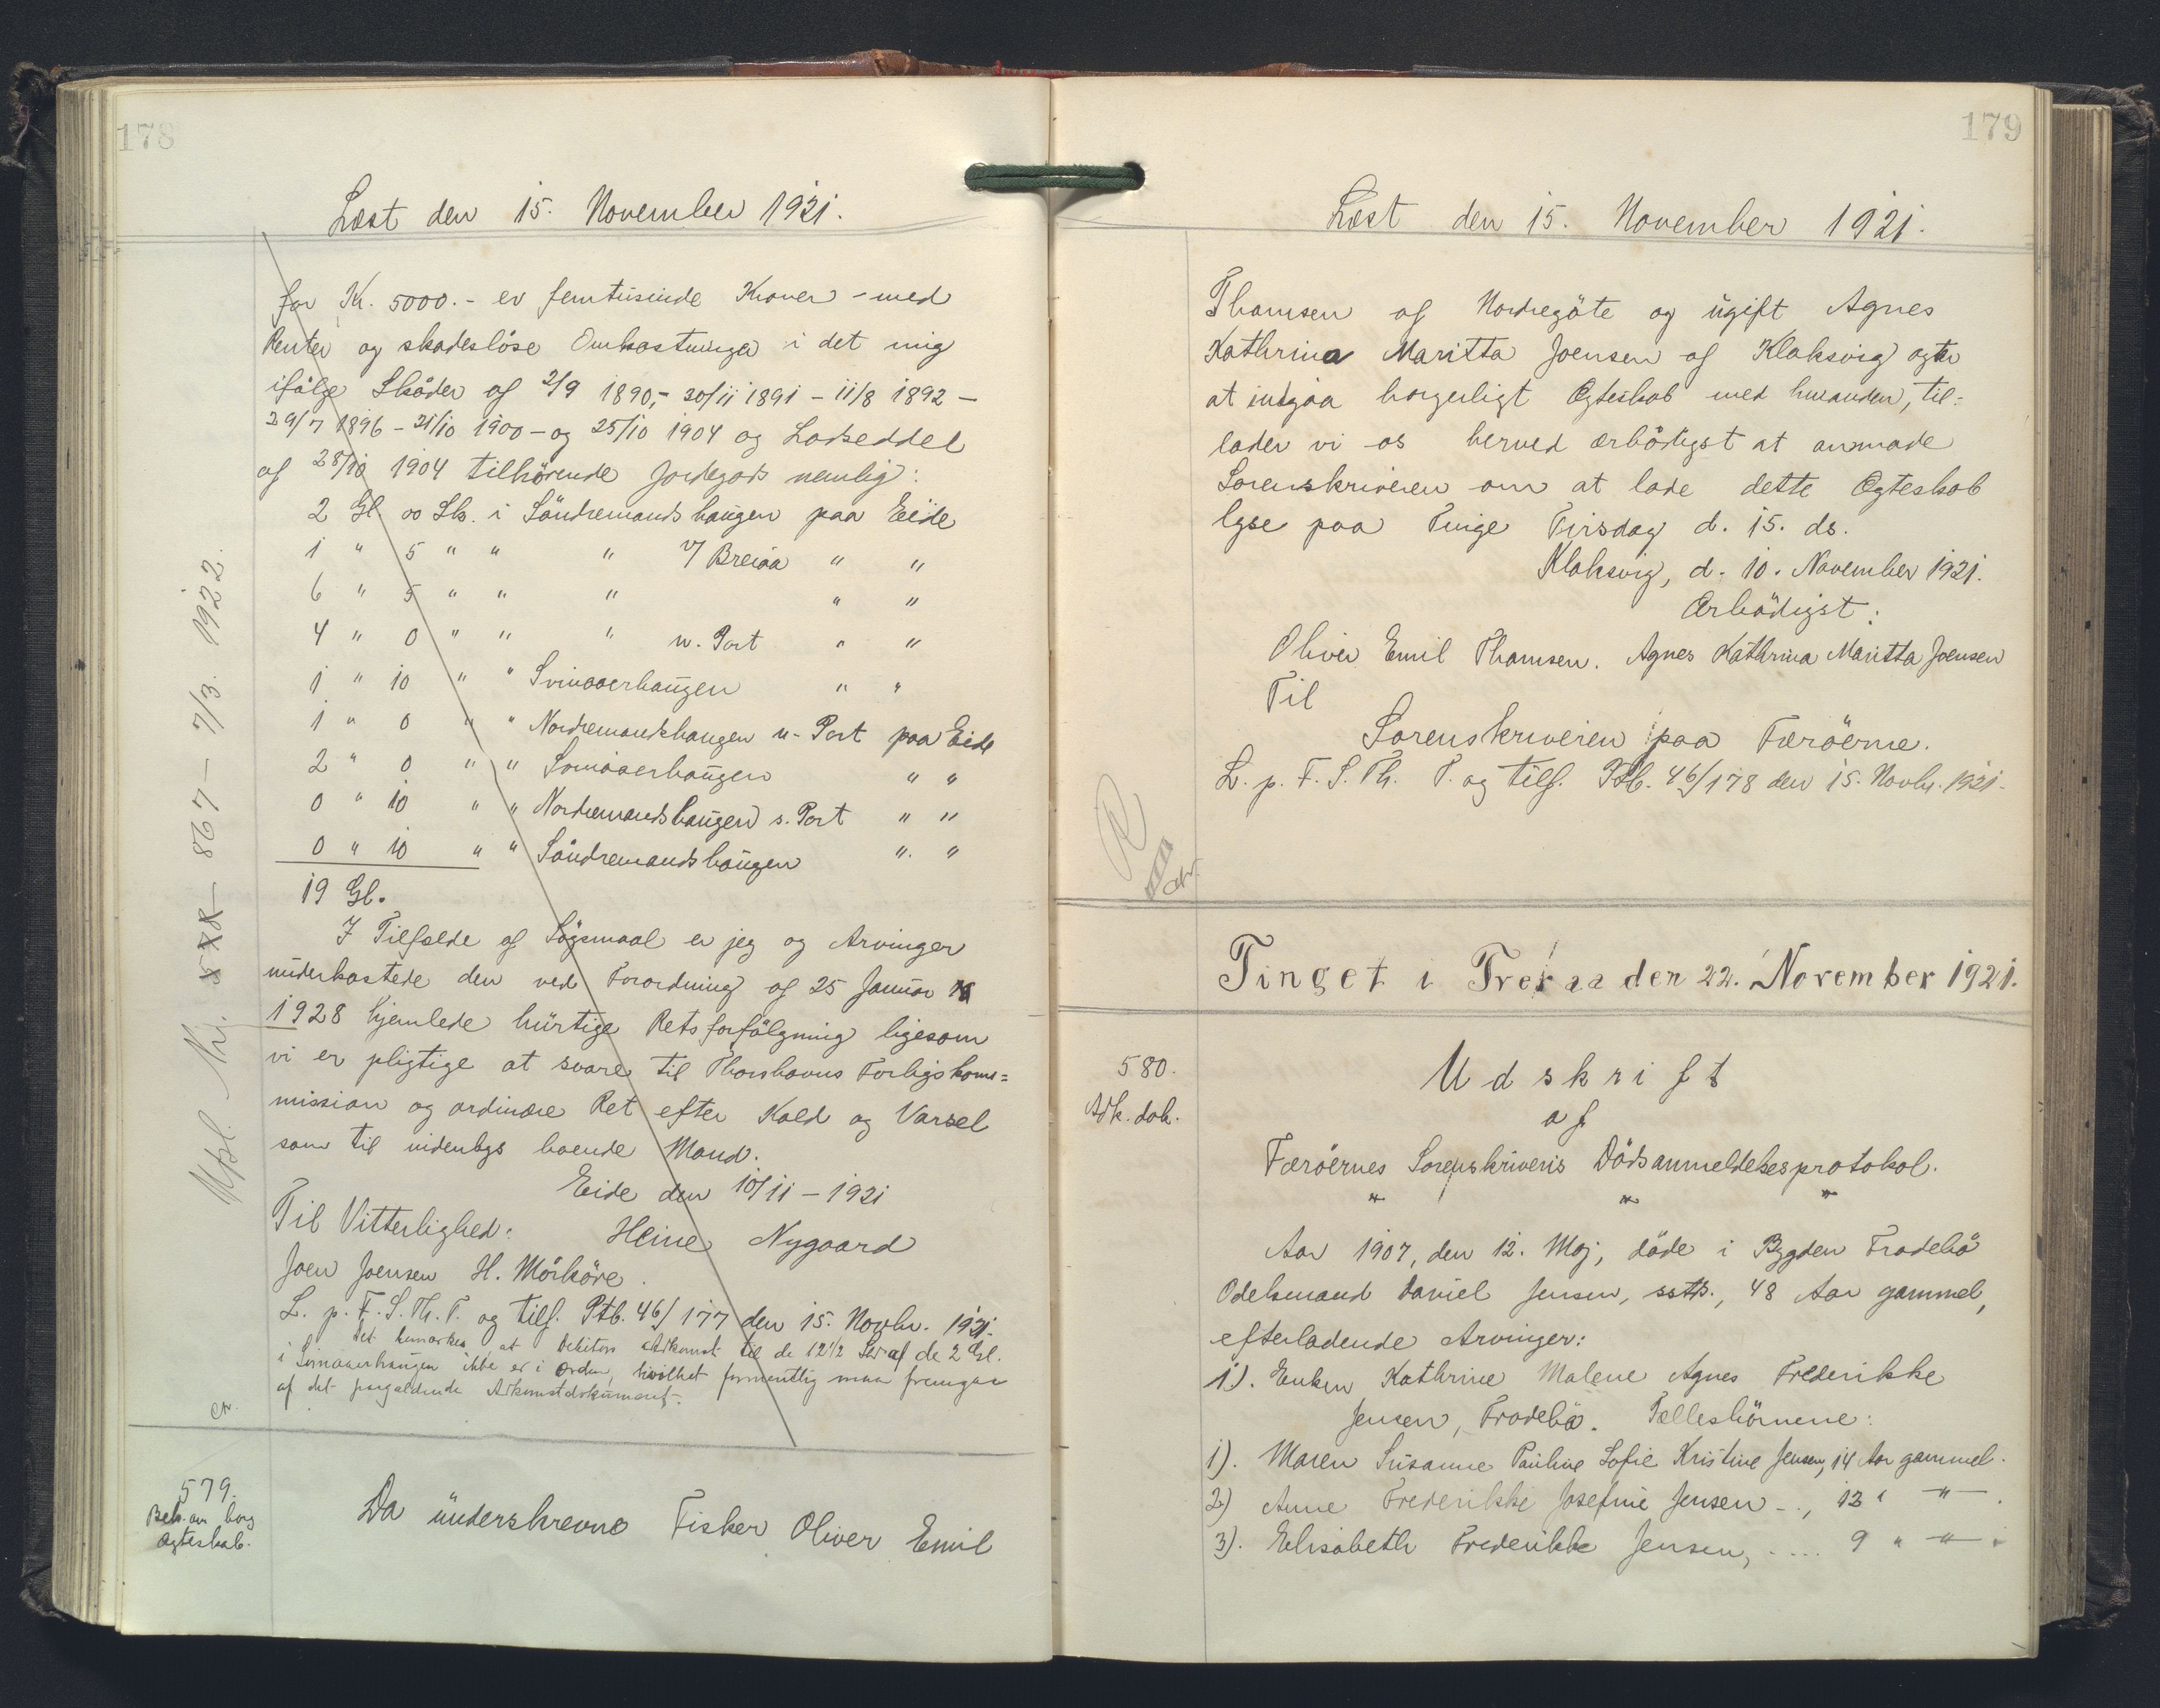 178
Læst den 15. November 1921.
for Kr. 5000.- er femtusinde Kroner - med
Renter og skadeslöse Omkostninger i det mig
ifölge Sköder af 2/9 1890,- 20/11 1891 - 11/8 1892 -
29/7 1896 - 21/10 1900 - og 25/10 1904 og Lodseddel
af 28/10 1904 tilhörende Jordegods nemlig:
2 Gl. 00 Sk. i Söndremandshaugen paa Eide
1 " 5 " " " v/ Breiaa " "
6 " 5 " " " " "
4 " 0 " " " n. Part " "
1 " 10 " " Svinaaerhaugen " "
1 " 0 " " Nordremandshaugen n. Part paa Eide
2 " 0 " " Svinaaerhaugen " "
0 " 10 " " Nordremandshaugen s. Part " "
0 " 10 " " Söndremandshaugen " "
19 Gl.
I Tilfælde af Sögsmaal er jeg og Arvinger
underkastede den ved Forordning af 25 Januar
1928 hjemlede hurtige Retsforfölgning ligesom
vi er pligtige at svare til Thorshavns Forligskom=
mission og ordinære Ret efter Kald og Varsel
som til indenbys boende Mand.
Eide den 10/11 - 1921
Til Vitterlighed: Heine Nygaard
Joen Joensen H. Mörköre.
L. p. F. S. Th. T. og tilf. Ptb. 46/177 den 15. Novbr. 1921.
Det bemærkes, at Debitors Adkomst til de 12 1/2 Sk af de 2 Gl.
i Svinaaerhaugen ikke er i Orden, hvilket formentlig maa fremgaa
af det paagældende Adkomstdokument.
Afsl. Nr. 558 - 867 - 7/3. 1922.
579.
Beh. om borg
Ægteskab.
Da underskrevne Fisker Oliver Emil
179
Læst den 15. November 1921.
Thomsen af Nordregöte og ugift Agnes
Kathrina Maritta Joensen af Klaksvig agter
at indgaa borgerligt Ægteskab med hinanden, til=
lader vi os herved ærbödigst at anmode
Sorenskriveren om at lade dette Ægteskab
lyse paa Tinge Tirsdag d. 15. ds.
Klaksvig, d. 10. November 1921.
Ærbödigst:
Oliver Emil Thomsen. Agnes Kathrina Maritta Joensen
Til
Sorenskriveren paa Færöerne.
L. p. F. S. Th. T. og tilf. Ptb. 46/178 den 15. Novbr. 1921.
Tinget i Traa den 22. November 1921.
580.
Adk. dok.
Udskrift
af
Færöernes Sorenskriveris Dödsanmeldelsesprotokol.
" " "
Aar 1907, den 12. Maj, döde i Bygden Frodebö
Odelsmand Daniel Jensen, sstds., 48 Aar gammel,
efterladende Arvinger:
1). Enken Kathrine Malene Agnes Frederikke
Jensen, Frodebö. Fællesbörnene:
1). Maren Susanne Pauline Sofie Kristine Jensen, 14 Aar gammel.
2) Anne Frederikke Josefine Jensen - .., 12 " — " —
3). Elisabeth Frederikke Jensen, .... 9 " — " —